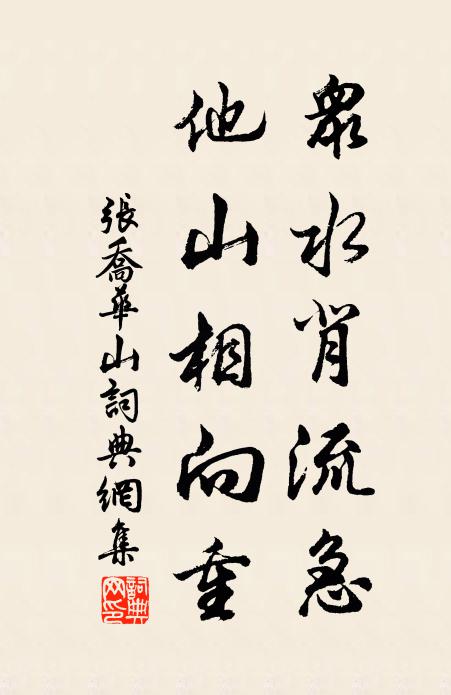 眾水背流急
他山相向重
張喬華山詞典網集
詞典網印